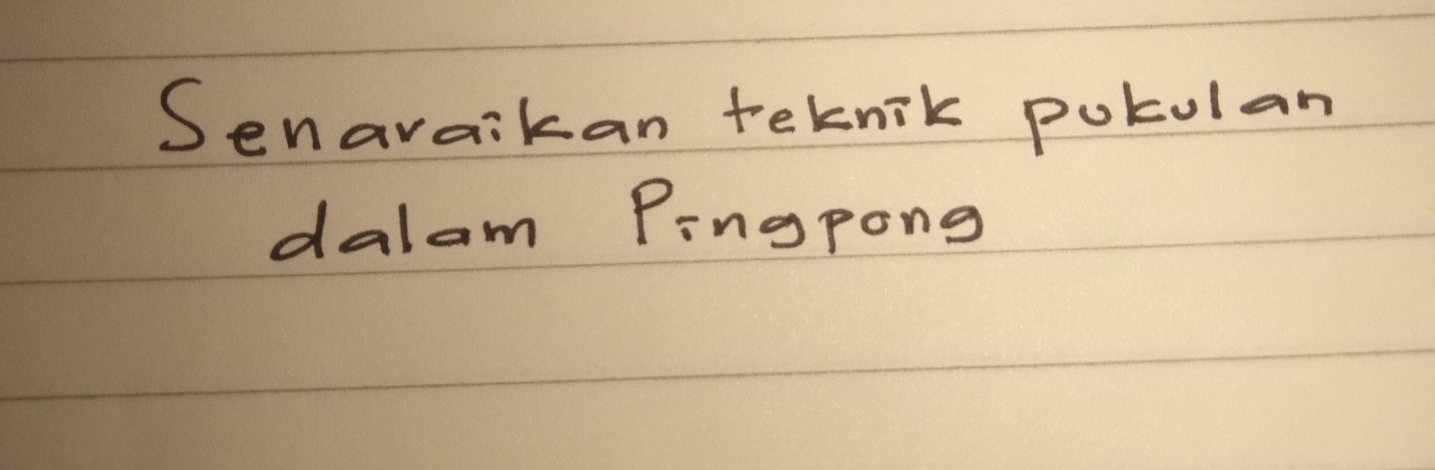 Senaraikan teknik pukulan
dalam Pingpong